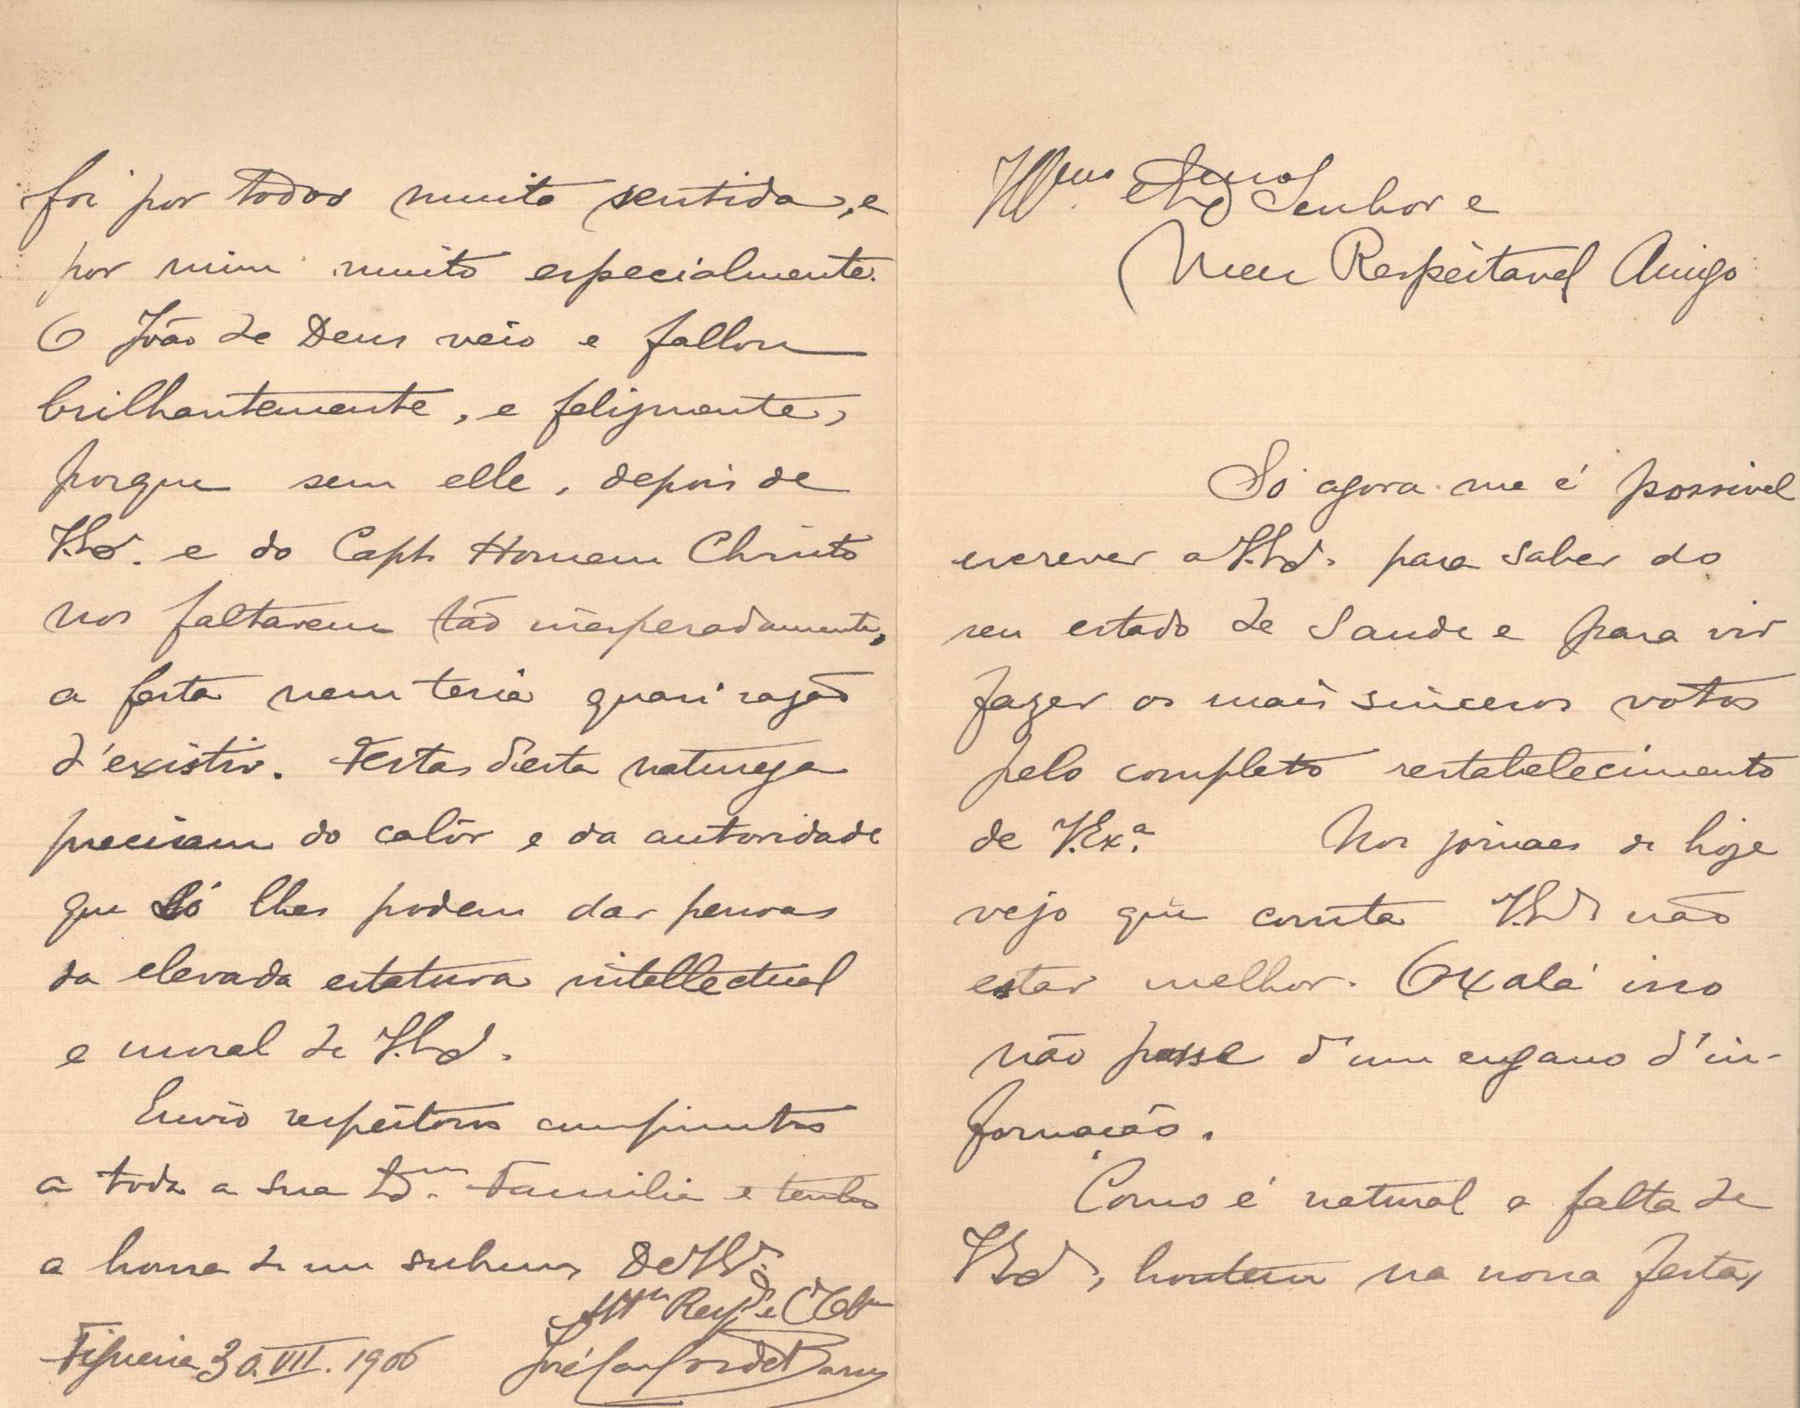 Illmo. Exmo Senhor e
Meu Respeitavel Amigo
Só agora me é possivel
escrever a V.Exª. para saber do
seu estado de Saude e para vir
fazer os mais sinceros votos
pelo completo restabelecimento
de V.Exª. Nos jornaes de hoje
vejo que consta V.Exª não
estar melhor. Oxalá isso
não passe d'um engano d'in-
formação.
Como é natural a falta de
V.Exª, hontem na nossa festa,
foi por todos muito sentida, e
por mim muito especialmente.
O João de Deus veio e fallou
brilhantemente, e felizmente,
porque sem elle, depois de
V.Exª. e do Capt. Homem Christo
nos faltarem tão inesperadamente,
a festa nem teria quasi razão
d'existir. Festas d'esta natureza
precisam do calôr e da autoridade
que só lhes podem dar pessoas
da elevada estatura intellectual
e moral de V.Exª.
Envio respeitosos cumprimentos
a toda a sua Exma. Familia e tenho
a honra de me subscrever De V.Exª.
Attº Respr e
Figueira 30.VII.1906 José